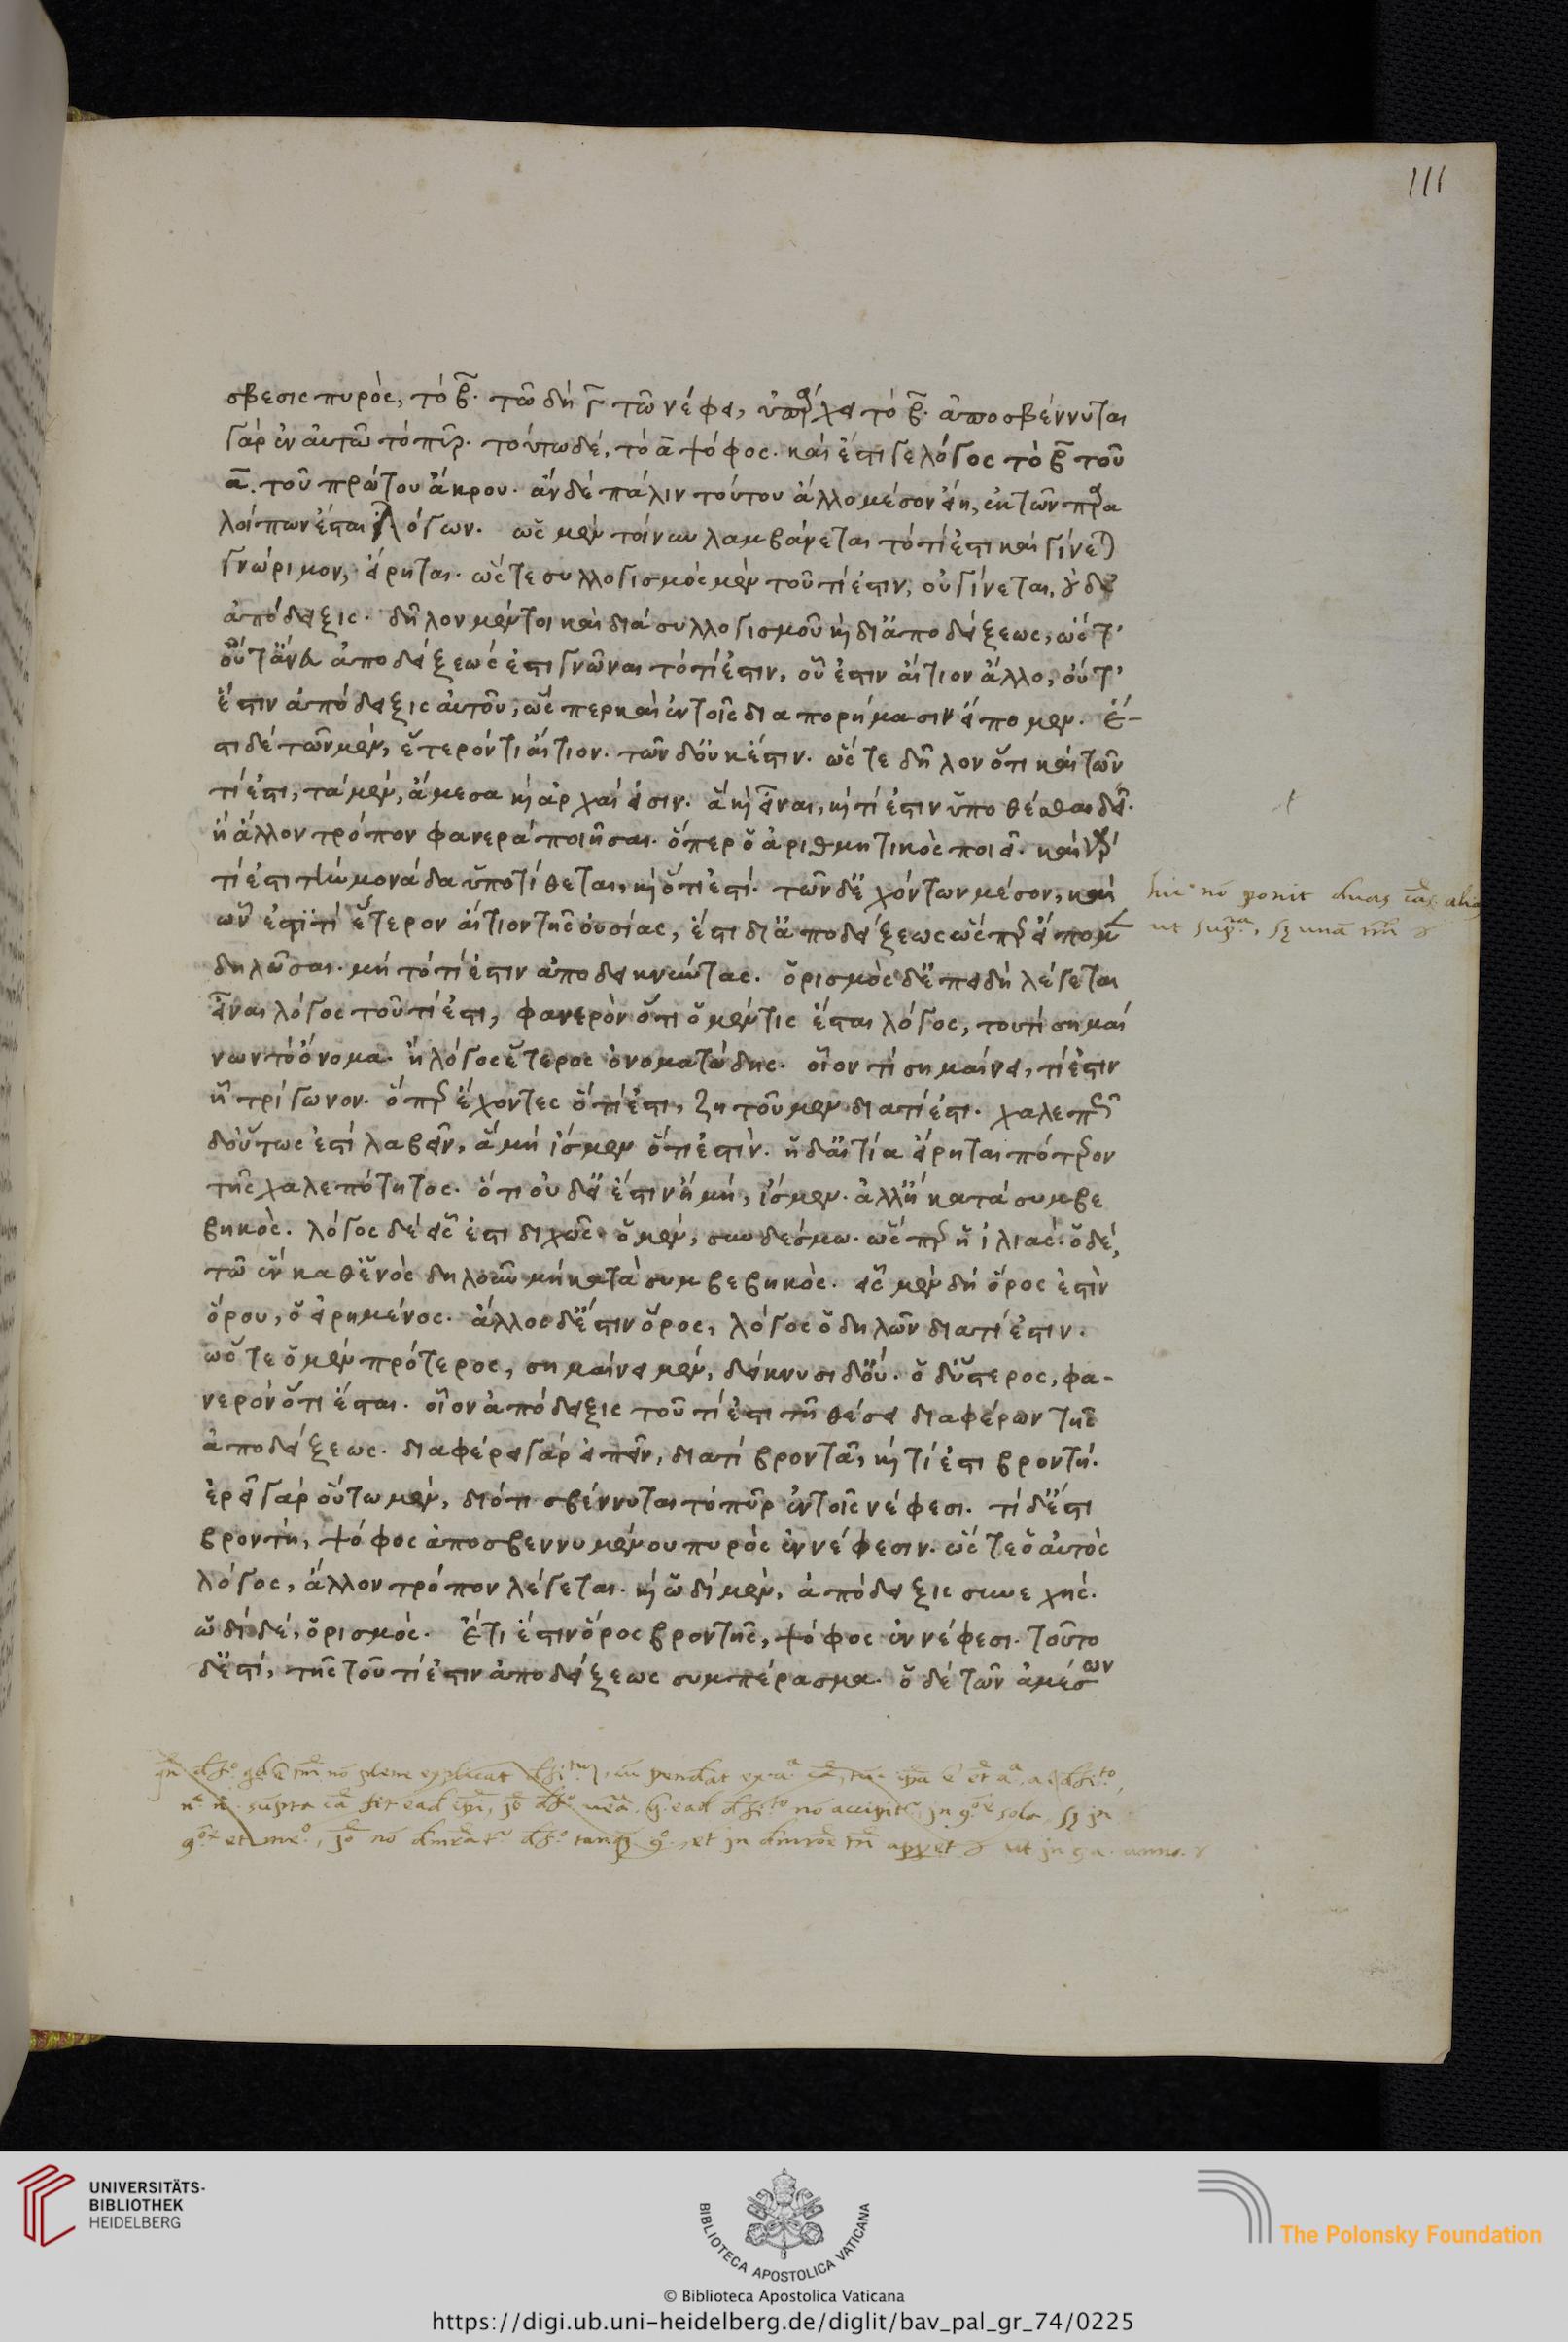 111
σβεσις πυρὸς, τὸ β̅. τῶ δὴ γ̅ τῶ νέφει, ὑπάρχει τὸ β̅. ἀποσβέννυται
γὰρ ἐν αὐτῶ τὸ πῦρ. τούτω δέ, τὸ α̅ ψόφος. καὶ ἔστι γε λόγος τὸ β̅ τοῦ
α̅. τοῦ πρώτου ἄκρου. ἂν δὲ πάλιν τούτου ἄλλο μέσον εἴη, ἐκ τῶν παρα
λοίπων ἔσται λόγων. ὡς μὲν τοίνυν λαμβάνεται τὸ τί ἐστι καὶ γίνεται
γνώριμον, εἴρηται. ὥστε συλλογισμὸς μὲν τοῦ τί ἐστιν, οὐ γίνεται, οὐδ'
ἀπόδειξις. δῆλον μέντοι καὶ διὰ συλλογισμοῦ καὶ δι' ἀποδείξεως, ὥστ'
οὔτ' ἄνευ ἀποδείξεως ἔστι γνῶναι τὸ τί ἐστιν, οὗ ἐστιν αἴτιον ἄλλο, οὔτ'
ἔστιν ἀπόδειξις αὐτοῦ, ὥσπερ καὶ ἐν τοῖς διαπορήμασιν εἴπομεν. ἔ-
στι δὲ τῶν μὲν, ἕτερόν τι αἴτιον. τῶν δ' οὐκ ἔστιν. ὥστε δῆλον ὅτι καὶ τῶν
τί ἐστι, τὰ μὲν, ἄμεσα καὶ ἀρχαί εἰσιν. ἃ καὶ εἶναι, καὶ τί ἐστιν ὑποθέσθαι δεῖ.
ἢ ἄλλον τρόπον φανερὰ ποιῆσαι. ὅπερ ὁ ἀριθμητικὸς ποιεῖ. καὶ γὰρ
τί ἐστι τὴν μονάδα ὑποτίθεται, καὶ ὅτι ἐστί. τῶν δ' ἐχόντων μέσον, καὶ
ὧν ἐστί τι ἕτερον αἴτιον τῆς οὐσίας, ἔστι δι' ἀποδείξεως ὥσπερ εἴπομεν
δηλῶσαι. μὴ τὸ τί ἐστιν ἀποδεικνύντας. ὁρισμὸς δ' ἐπειδὴ λέγεται
εἶναι λόγος τοῦ τί ἐστι, φανερὸν ὅτι ὁ μέν τις ἔσται λόγος, τοῦ τί σημαί
νων τὸ ὄνομα. ἢ λόγος ἕτερος ὀνοματώδης. οἷον τί σημαίνει, τί ἐστιν
ἧ τρίγωνον. ὅπερ ἔχοντες ὅτι ἔστι, ζητοῦμεν διατί ἐστι. χαλεπὸν
δ' οὕτως ἐστὶ λαβεῖν, ἃ μὴ ἴσμεν ὅτι ἐστίν. ἡ δ' αἰτία εἴρηται πρότερον
τῆς χαλεπότητος. ὅτι οὐδ' εἰ ἔστιν ἢ μή, ἴσμεν. ἀλλ' ἢ κατὰ συμβε
βηκός. λόγος δὲ εἷς ἐστι διχῶς. ὁ μὲν, συνδέσμω. ὥσπερ ἡ ἰλιάς. ὁ δέ,
τῶ ἓν καθ' ἑνὸς δηλοῦν μὴ κατὰ συμβεβηκὸς. εἷς μὲν δὴ ὅρος ἐστὶν
ὅρου, ὁ εἰρημένος. ἄλλος δ' ἐστὶν ὅρος, λόγος ὁ δηλῶν διατί ἐστιν.
ὥστε ὁ μὲν πρότερος, σημαίνει μέν, δείκνυσι δ' οὔ. ὁ δ' ὕστερος, φα-
νερὸν ὅτι ἔσται. οἷον ἀπόδειξις τοῦ τί ἐστι τῆ θέσει διαφέρων τῆς
ἀποδείξεως. διαφέρει γὰρ εἰπεῖν, διατί βροντᾶ, καὶ τί ἐστι βροντή.
ἐρεῖ γὰρ οὕτω μέν, διότι σβέννυται τὸ πῦρ ἐν τοῖς νέφεσι. τί δ' ἐστὶ
βροντή, ψόφος ἀποσβεννυμένου πυρὸς ἐν νέφεσιν. ὥστε ὁ αὐτὸς
λόγος, ἄλλον τρόπον λέγεται. καὶ ὡδὶ μὲν, ἀπόδειξις συνεχής.
ὡδὶ δέ, ὁρισμός. ἔτι ἐστὶν ὅρος βροντῆς, ψόφος ἐν νέφεσι. τοῦτο
δ' ἐστί, τῆς τοῦ τί ἐστιν ἀποδείξεως συμπέρασμα. ὁ δὲ τῶν ἀμέσων
hic no ponit duas
UNIVERSITÄTS-
BIBLIOTHEK
HEIDELBERG
BIBLIOTECA APOSTOLICA VATICANA
The Polonsky Foundation
© Biblioteca Apostolica Vaticana
https://digi.ub.uni-heidelberg.de/diglit/bav_pal_gr_74/0225